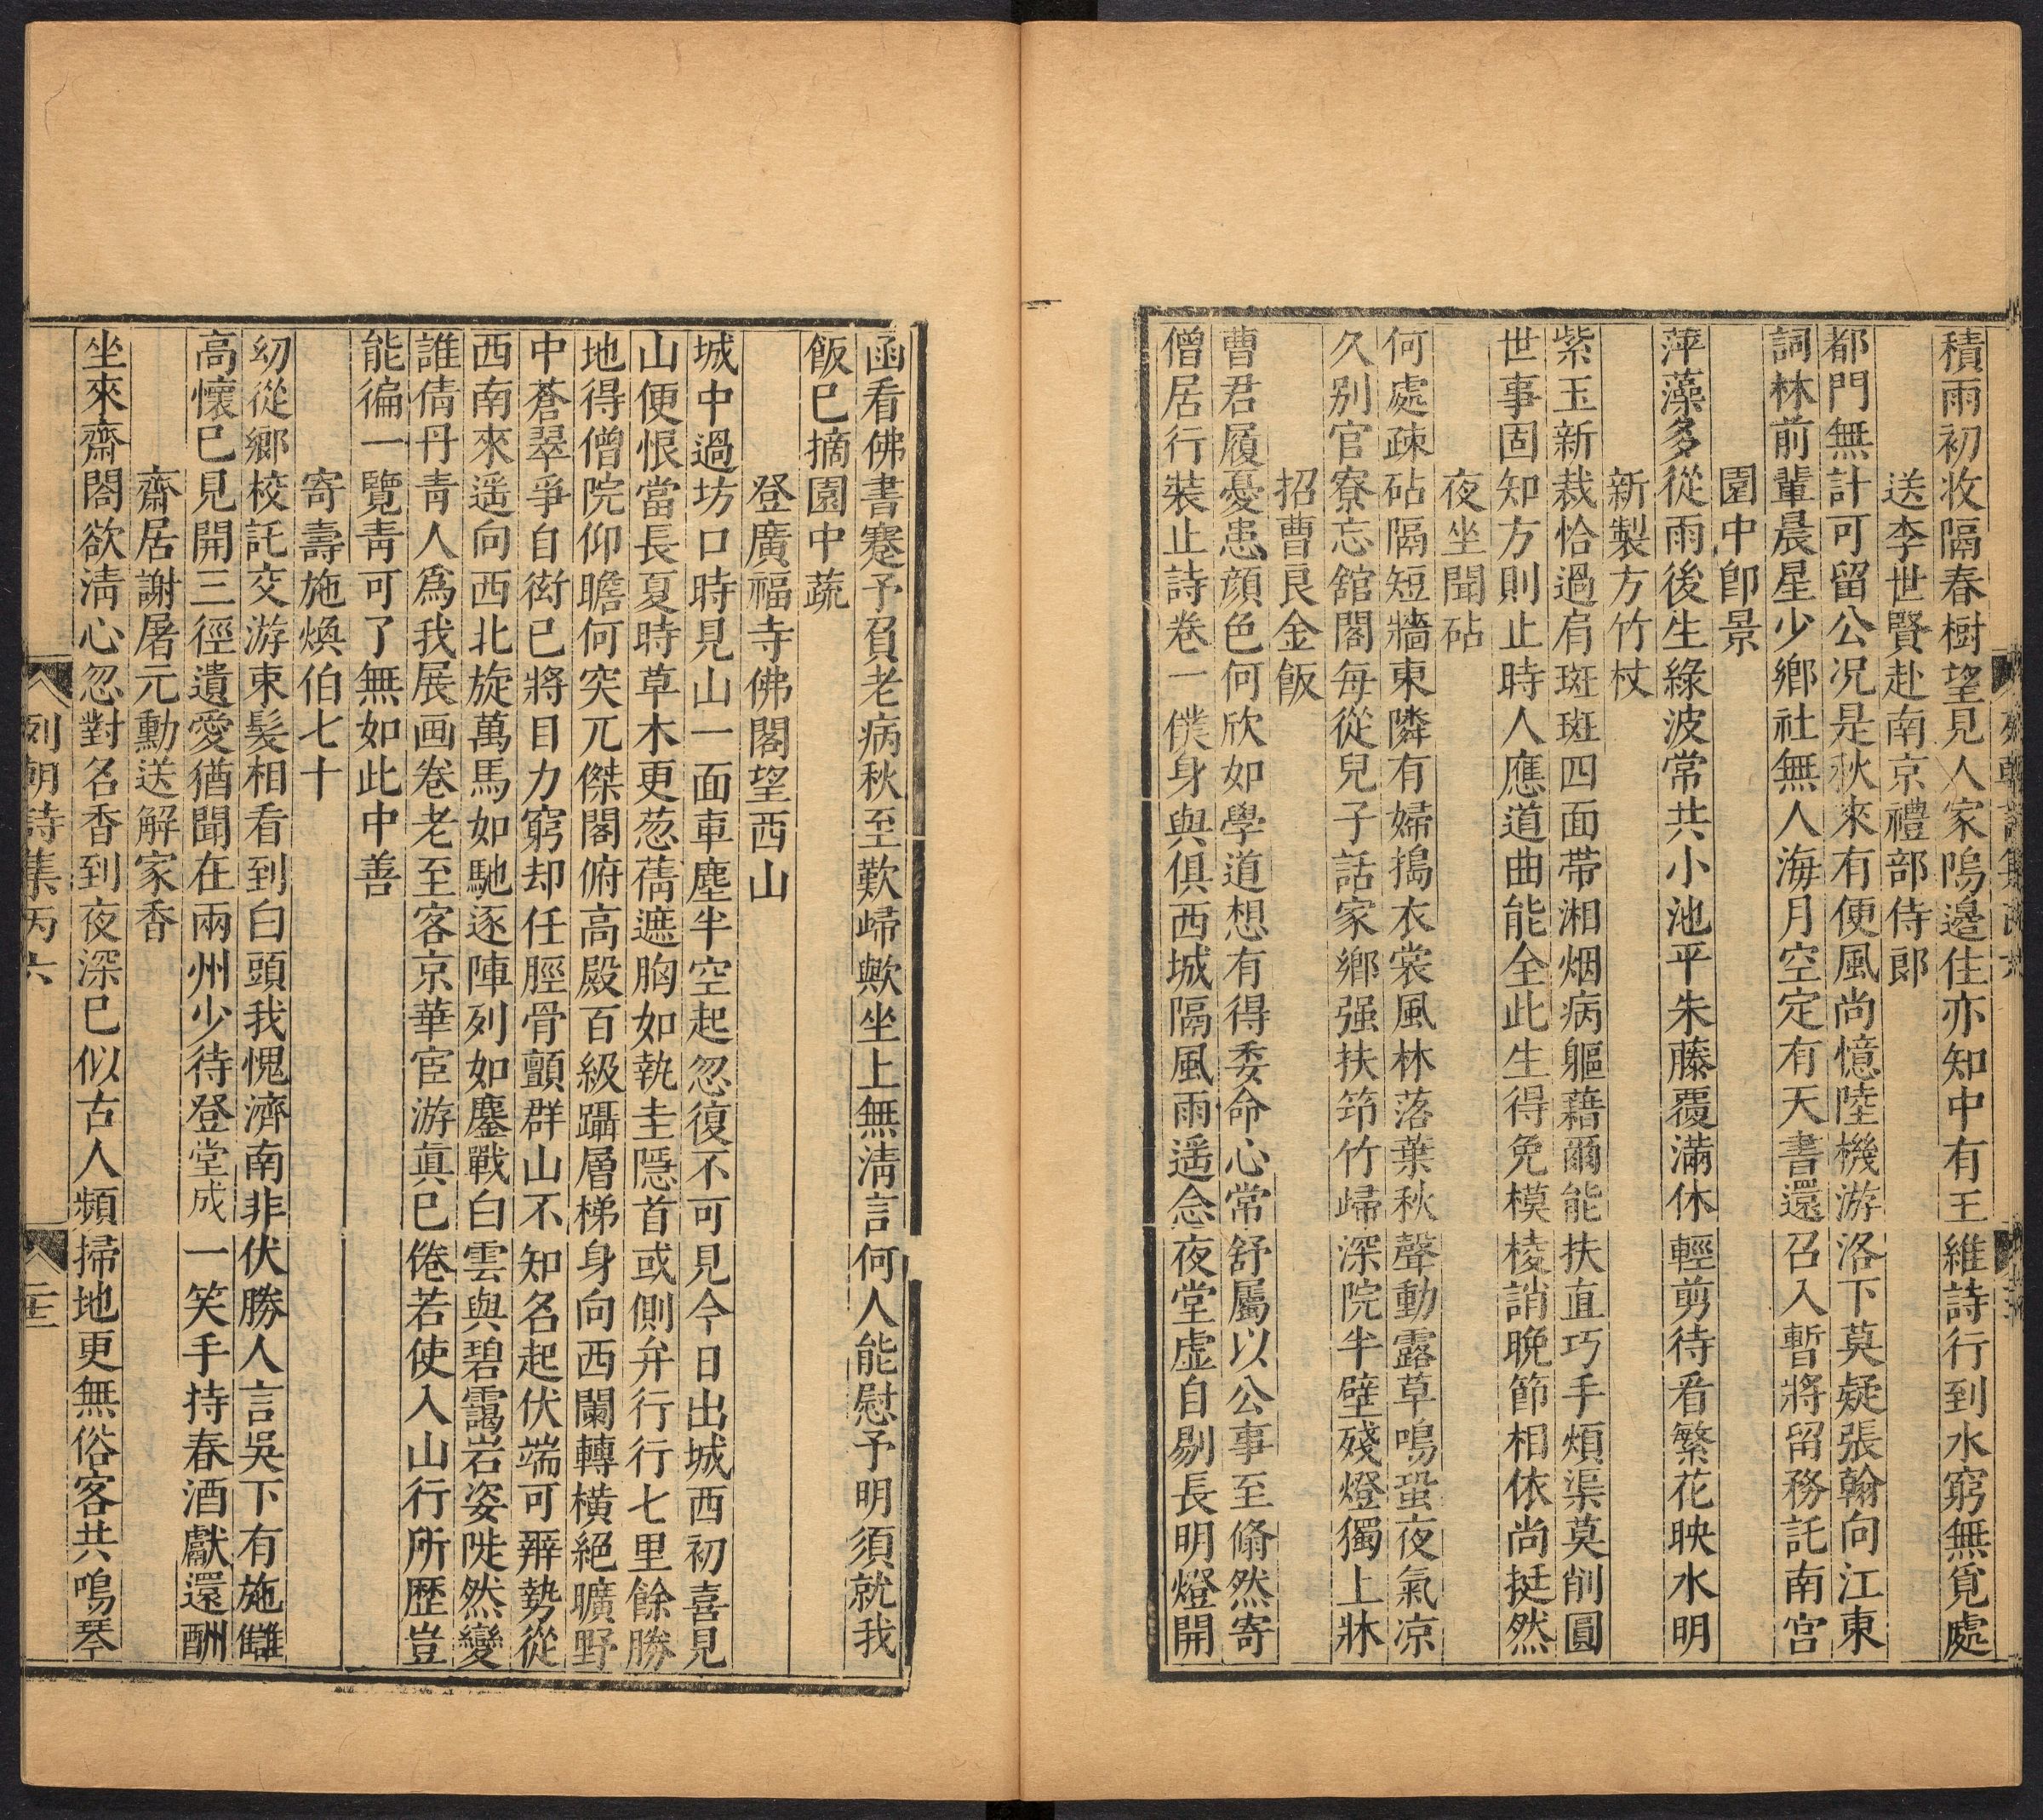 積雨初收隔春樹望見人家塢邊住亦知中有王維詩行到水窮無覓處
送李世賢赴南京禮部侍郎
都門無計可留公况是秋來有便風尚憶陸機游洛下莫疑張翰向江東
詞林前輩晨星少鄉社無人海月空定有天書還召入暫將留務託南宮
園中卽景
萍藻多從雨後生綠波常共小池平朱藤覆滿休輕剪待看繁花映水明
新製方竹杖
紫玉新裁恰過肩斑斑四面帶湘烟病軀藉爾能扶直巧手煩渠莫削圓
世事固知方則止時人應道曲能全此生得免模棱誚晚節相依尚挺然
夜坐聞砧
何處疎砧隔短牆東隣有婦搗衣裳風林落葉秋聲動露草鳴蛩夜氣凉
久别官寮忘舘閣每從兒子話家鄉强扶笻竹歸深院半壁殘燈獨上牀
招曹良金飯
曹君履憂患顔色何欣如學道想有得委命心常舒屬以公事至翛然寄
僧居行裝止詩卷一僕身與俱西城隔風雨遥念夜堂虚自剔長明燈開
函看佛書蹇予負老病秋至歎歸歟坐上無淸言何人能慰予明須就我
飯已摘園中蔬
登廣福寺佛閣望西山
城中過坊口時見山一面車塵半空起忽復不可見今日出城西初喜見
山便恨當長夏時草木更葱蒨遮胸如執圭隱首或側弁行行七里餘勝
地得僧院仰瞻何突兀傑閣俯高殿百級躡層梯身向西闌轉横絕曠野
中蒼翠爭自衒已將目力窮却任脛骨顫群山不知名起伏端可辨勢從
西南來遥向西北旋萬馬如馳逐陣列如鏖戰白雲與碧靄岩姿陡然變
誰倩丹靑人爲我展画卷老至客京華宦游眞已倦若使入山行所歷豈
能徧一覽靑可了無如此中善
寄壽施煥伯七十
幼從鄉校託交游束髮相看到白頭我愧濟南非伏勝人言吳下有施讎
高懷已見開三徑遺愛猶聞在兩州少待登堂成一笑手持春酒獻還酬
齋居謝屠元勳送解家香
坐來齋閤欲淸心忽對名香到夜深已似古人頻掃地更無俗客共鳴琴
列朝詩集丙六